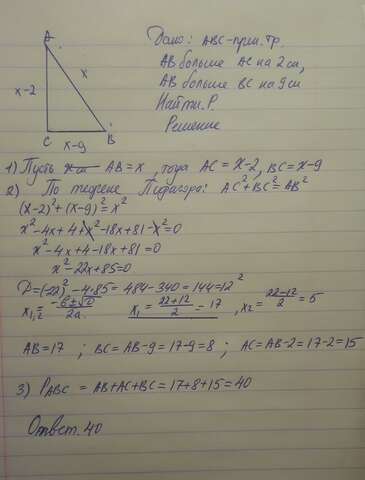 A
Дано: ABC-прям.тр.
AB больше AC на 2см,
AB больше BC на 9см
Найти: P.
Решение
x-2
x
C
x-9
B
1) Пусть AB=x, тогда AC=x-2, BC=x-9
2) По теореме Пифагора: AC²+BC²=AB²
(x-2)²+(x-9)²=x²
x²-4x+4+x²-18x+81-x²=0
x²-4x+4-18x+81=0
x²-22x+85=0
D=(-22)²-4·85=484-340=144=12²
x₁,₂=-b±√D/2a x₁=22+12/2=17, x₂=22-12/2=5
AB=17; BC=AB-9=17-9=8; AC=AB-2=17-2=15
3) P ABC = AB+AC+BC=17+8+15=40
Ответ: 40